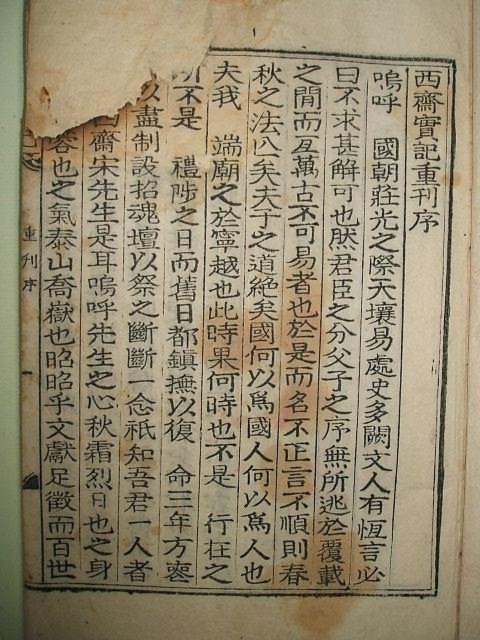 西齋實記重刊序
嗚呼 國朝莊光之際天壤易處史多闕文人有恆言必
曰不求甚解可也然君臣之分父子之序無所逃於覆載
之間而亙萬古不可易者也於是而名不正言不順則春
秋之法亡矣夫子之道絶矣國何以爲國人何以爲人也
夫我 端廟之於寧越也此時果何時也不是 行在之
所不是 禮陟之日而舊日都鎭撫以復 命三年方喪
以盡制設招魂壇以祭之斷斷一念祇知吾君一人者
西齋宋先生是耳嗚呼先生之心秋霜烈日也之身
容也之氣泰山喬嶽也昭昭乎文獻足徵而百世
重刊序